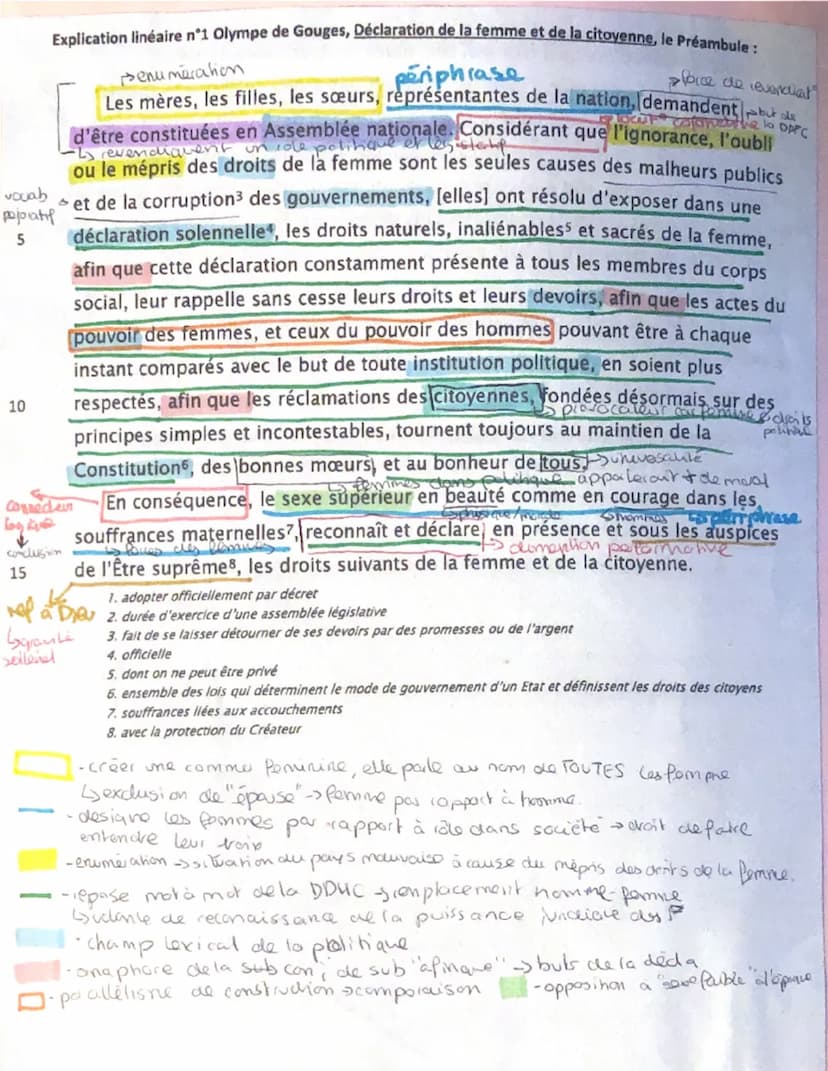 Explication linéaire n°1 Olympe de Gouges, Déclaration de la femme et de la citoyenne, le Préambule :
↳enumération
périphrase
Les mères, les filles, les sœurs, représentantes de la nation, demandent
→but de
d'être constituées en Assemblée nationale. Considérant que l'ignorance, l'oubli
la DDFC
↳ revendiquent un role politique et
ou le mépris des droits de la femme sont les seules causes des malheurs publics
vocab
péjoratif
et de la corruption³ des gouvernements, [elles] ont résolu d'exposer dans une
5 déclaration solennelle⁴, les droits naturels, inaliénables⁵ et sacrés de la femme,
afin que cette déclaration constamment présente à tous les membres du corps
social, leur rappelle sans cesse leurs droits et leurs devoirs, afin que les actes du
pouvoir des femmes, et ceux du pouvoir des hommes pouvant être à chaque
instant comparés avec le but de toute institution politique, en soient plus
10 respectés, afin que les réclamations des citoyennes, fondées désormais sur des
↳ provocateur car femme droits
principes simples et incontestables, tournent toujours au maintien de la
Constitution⁶, des bonnes mœurs, et au bonheur de tous. →universalité
↳ femmes dans politique apporterait + de moral
connecteur
logique
↓
conclusion
En conséquence, le sexe supérieur en beauté comme en courage dans les
↳physique ↳hommes ↳périphrase
souffrances maternelles⁷, reconnaît et déclare, en présence et sous les auspices
↳ forces des femmes
↳ dimension performative
15 de l'Être suprême⁸, les droits suivants de la femme et de la citoyenne.
ref à Dieu
1. adopter officiellement par décret
2. durée d'exercice d'une assemblée législative
3. fait de se laisser détourner de ses devoirs par des promesses ou de l'argent
4. officielle
5. dont on ne peut être privé
6. ensemble des lois qui déterminent le mode de gouvernement d'un Etat et définissent les droits des citoyens
7. souffrances liées aux accouchements
8. avec la protection du Créateur
- créer une commu féminine, elle parle au nom de TOUTES les femme
↳exclusion de "épouse" → femme par rapport à homme.
- designe les femmes par rapport à role dans société → droit de faire
entendre leur voix
- enumération → situation du pays mauvaise à cause du mépris des droits de la femme.
- reprise mot à mot de la DDHC → remplacement homme-femme
↳volonté de reconnaissance de la puissance juridique des F
- champ lexical de la politique
- anaphore de la sub conj de sub "afin que" → buts de la décla
- parallélisme de construction → comparaison
- opposition à "sexe faible" à l'époque